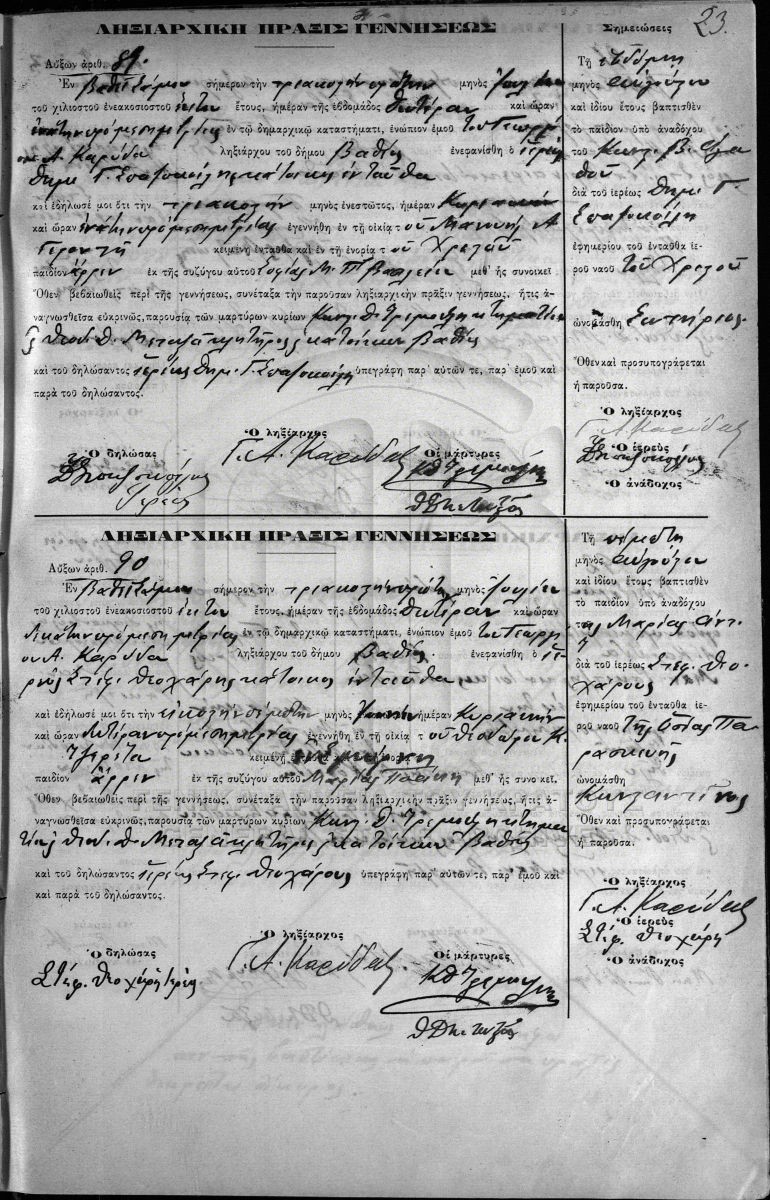 23.
ΛΗΞΙΑΡΧΙΚΗ ΠΡΑΞΙΣ ΓΕΝΝΗΣΕΩΣ
Αὔξων ἀριθ. 89.
Ἐν Βαθεῖ Σάμου σήμερον τὴν τριακοστὴν πρώτην μηνὸς Ἰουλίου
τοῦ χιλιοστοῦ ἐνεακοσιοστοῦ ἕκτου ἔτους, ἡμέραν τῆς ἑβδομάδος Δευτέραν καὶ ὥραν
ἐν τῷ δημαρχικῷ καταστήματι, ἐνώπιον ἐμοῦ τοῦ Γεωργί
ου Α. Καρύδα ληξιάρχου τοῦ δήμου Βαθέος ἐνεφανίσθη ὁ ἱερεὺς
Δημ. Γ. κάτοικος ἐνταῦθα
καὶ ἐδήλωσέ μοι ὅτι τὴν τριακοστὴν μηνὸς ἐνεστῶτος, ἡμέραν Κυριακὴν
καὶ ὥραν ἐγεννήθη ἐν τῇ οἰκίᾳ τοῦ Μανουὴλ Α.
κειμένῃ ἐνταῦθα καὶ ἐν τῇ ἐνορίᾳ τοῦ Χριστοῦ
παιδίον ἄρρεν ἐκ τῆς συζύγου αὐτοῦ Σοφίας Μ. Π. Βασιλείου μεθ' ἧς συνοικεῖ
Ὅθεν βεβαιωθεὶς περὶ τῆς γεννήσεως, συνέταξα τὴν παροῦσαν ληξιαρχικὴν πρᾶξιν γεννήσεως, ἥτις ἀ-
ναγνωσθεῖσα εὐκρινῶς, παρουσίᾳ τῶν μαρτύρων κυρίων Κωνστ. Θ. κτηματίου
Θεοδ. Θ. κλητῆρος κατοίκων Βαθέος
καὶ τοῦ δηλώσαντος ἱερέως Δημ. Γ. ὑπεγράφη παρ' αὐτῶν τε, παρ' ἐμοῦ καὶ
παρὰ τοῦ δηλώσαντος.
Ὁ δηλώσας
Ὁ ληξίαρχος
Οἱ μάρτυρες
Ἱερεύς
Γ. Α. Καρύδας
Σημειώσεις
Τῇ ἑβδόμῃ
μηνὸς Αὐγούστου
καὶ ἰδίου ἔτους βαπτισθὲν
τὸ παιδίον ὑπὸ ἀναδόχου
τοῦ Κωνστ. Β.
διὰ τοῦ ἱερέως Δημ. Γ.
ἐφημερίου τοῦ ἐνταῦθα ἱε-
ροῦ ναοῦ τοῦ Χριστοῦ
ὠνομάσθη Σωτήριος
Ὅθεν καὶ προσυπογράφεται
ἡ παροῦσα.
Ὁ ληξίαρχος
Γ. Α. Καρύδας
Ὁ ἱερεὺς
Ὁ ἀνάδοχος
ΛΗΞΙΑΡΧΙΚΗ ΠΡΑΞΙΣ ΓΕΝΝΗΣΕΩΣ
Αὔξων ἀριθ. 90
Ἐν Βαθεῖ Σάμου σήμερον τὴν τριακοστὴν πρώτην μηνὸς Ἰουλίου
τοῦ χιλιοστοῦ ἐνεακοσιοστοῦ ἕκτου ἔτους, ἡμέραν τῆς ἑβδομάδος Δευτέραν καὶ ὥραν
δεκάτην πρὸ μεσημβρίας ἐν τῷ δημαρχικῷ καταστήματι, ἐνώπιον ἐμοῦ τοῦ Γεωργί
ου Α. Καρύδα ληξιάρχου τοῦ δήμου Βαθέος ἐνεφανίσθη ὁ ἱε-
ρεὺς Στεφ. Θεοχάρης κάτοικος ἐνταῦθα
καὶ ἐδήλωσέ μοι ὅτι τὴν εἰκοστὴν πέμπτην μηνὸς ἡμέραν Κυριακὴν
καὶ ὥραν δευτέραν πρὸ μεσημβρίας ἐγεννήθη ἐν τῇ οἰκίᾳ τοῦ Θεοδώρου Κ.
κειμένῃ
παιδίον ἄρρεν ἐκ τῆς συζύγου αὐτοῦ Μαρίας μεθ' ἧς συνοικεῖ.
Ὅθεν βεβαιωθεὶς περὶ τῆς γεννήσεως, συνέταξα τὴν παροῦσαν ληξιαρχικὴν πρᾶξιν γεννήσεως, ἥτις ἀ-
ναγνωσθεῖσα εὐκρινῶς, παρουσίᾳ τῶν μαρτύρων κυρίων Κωνστ. Θ. κτημα
τίου Θεοδ. Θ. κλητῆρος κατοίκων Βαθέος
καὶ τοῦ δηλώσαντος ἱερέως Στεφ. Θεοχάρους ὑπεγράφη παρ' αὐτῶν τε, παρ' ἐμοῦ καὶ
καὶ παρὰ τοῦ δηλώσαντος.
Ὁ δηλώσας
Ὁ ληξίαρχος
Οἱ μάρτυρες
Στεφ. Θεοχάρη ἱερεὺς
Γ. Α. Καρύδας
Τῇ πέμπτῃ
μηνὸς Αὐγούστου
καὶ ἰδίου ἔτους βαπτισθὲν
τὸ παιδίον ὑπὸ ἀναδόχου
τῆς Μαρίας
διὰ τοῦ ἱερέως Στεφ. Θεο
χάρους
ἐφημερίου τοῦ ἐνταῦθα ἱε-
ροῦ ναοῦ τῆς Ὁσίας Πα
ρασκευῆς
ὠνομάσθη
Κωνσταντῖνος
Ὅθεν καὶ προσυπογράφεται
ἡ παροῦσα.
Ὁ ληξίαρχος
Γ. Α. Καρύδας
Ὁ ἱερεὺς
Στεφ. Θεοχάρη
Ὁ ἀνάδοχος